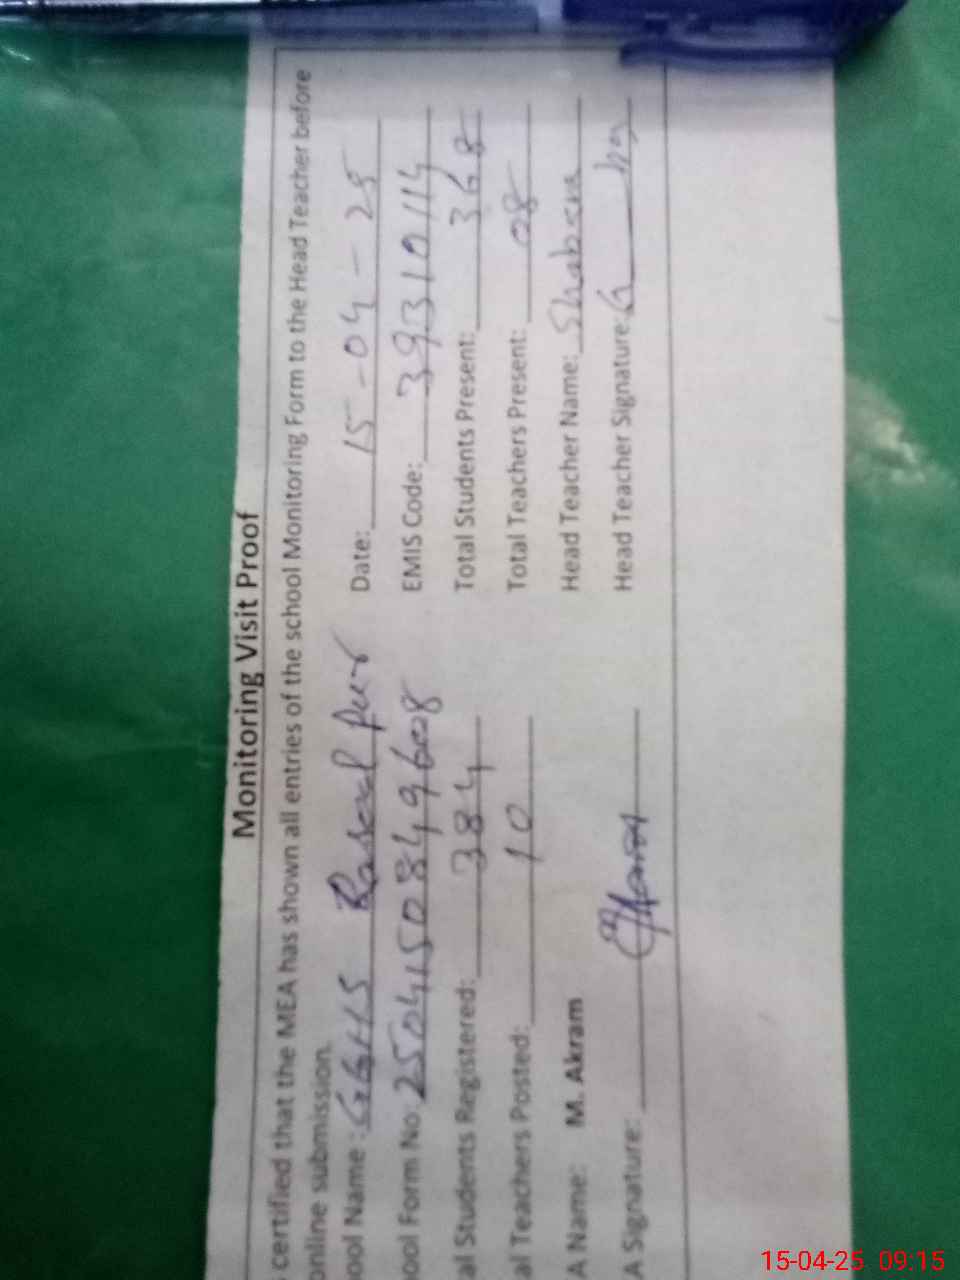 Monitoring Visit Proof
certified that the MEA has shown all entries of the school Monitoring Form to the Head Teacher before
online submission.
ool Name: GGHS Rasool Pur Date: 15-04-25
ool Form No: 2504150849608 EMIS Code: 39310114
al Students Registered: 384 Total Students Present: 368
al Teachers Posted: 10 Total Teachers Present: 08
A Name: M. Akram Head Teacher Name:
A Signature: Head Teacher Signature:
15-04-25 09:15